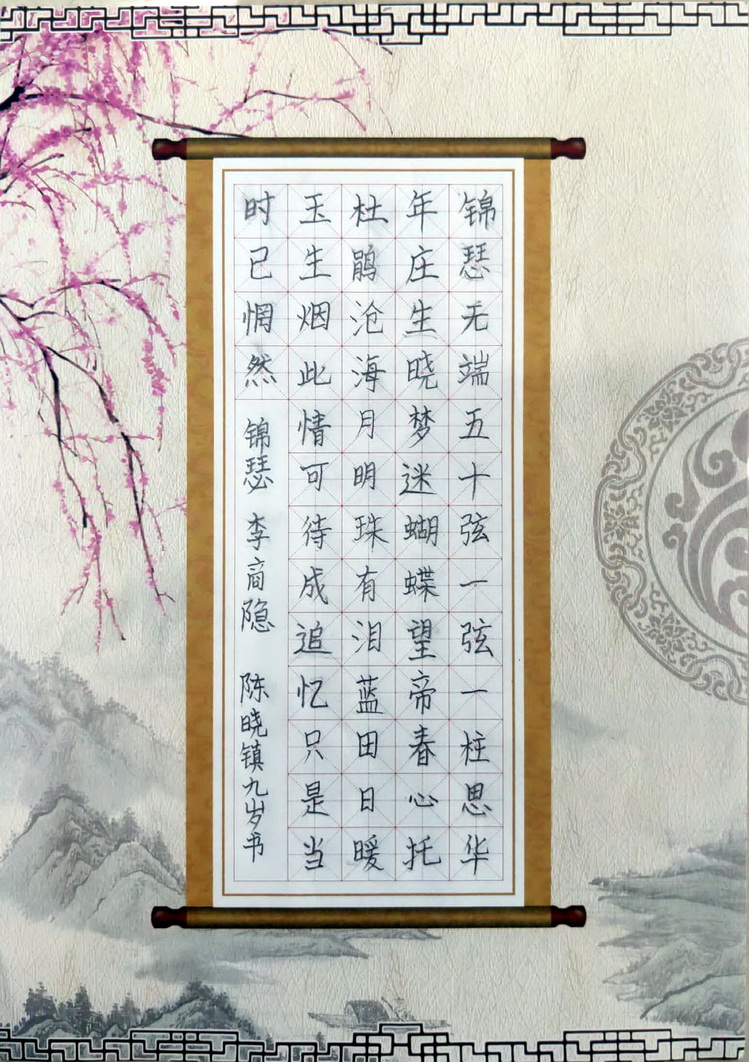 锦瑟无端五十弦一弦一柱思华
年庄生晓梦迷蝴蝶望帝春心托
杜鹃沧海月明珠有泪蓝田日暖
玉生烟此情可待成追忆只是当
时已惘然 锦瑟 李商隐 陈晓镇九岁书